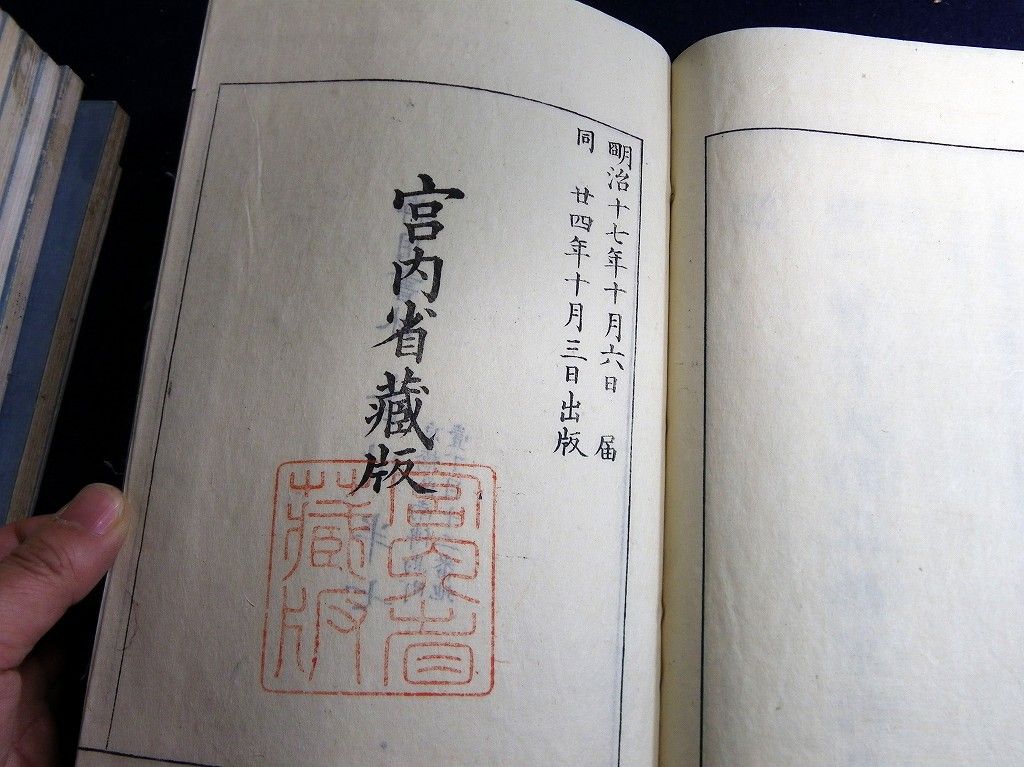 明治十七年十月六日 届
同 廿四年十月三日出版
宮内省藏版
宮内省
藏版